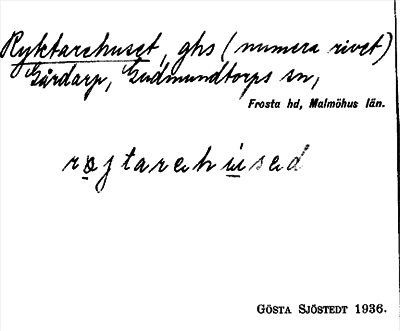 Ryktarehuset, ghs (numera rivet)
Gårdarp, Gudmundtorps sn,
Frosta hd, Malmöhus län.
røʒtarehúsed
GÖSTA SJÖSTEDT 1936.